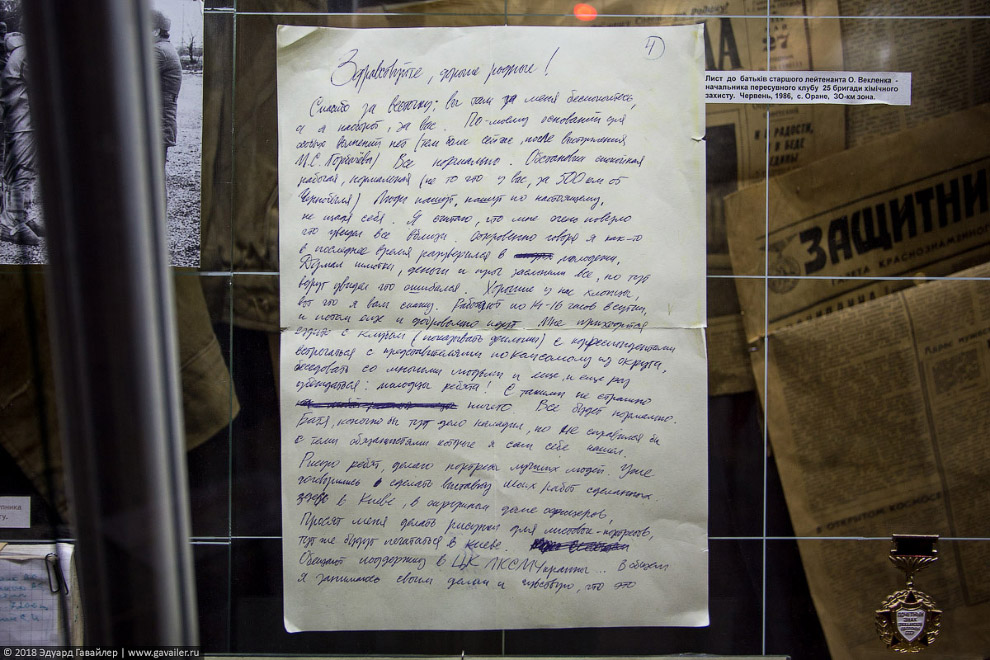 1
Здравствуйте, дорогие родные!
Спасибо за весточку; вы там за меня беспокоитесь,
а я наоборот, за вас. По-моему оснований для
особых волнений нет (тем более сейчас, после выступления
М.С. Горбачёва) Все нормально. Обстановка спокойная
рабочая, нормальная (не то что у вас, за 500 км от
Чернобыля) Люди пашут, пашут по настоящему,
не щадя себя. Я считаю, что мне очень повезло
что увидел все вблизи. Откровенно говоря я как-то
в последнее время разуверился в молодежи,
Думал шмотки, деньги и заслонили все, но тут
вдруг увидел что ошибался. Хорошие у нас хлопцы,
вот что я вам скажу. Работают по 14-16 часов в сутки,
и потом еще и добровольно идут. Мне приходится
ездить с клубом (показывать фильмы) с корреспондентами
встречаться с представителями по комсомолу из округа,
беседовать со многими людьми и еще, и еще раз
убеждаться: молодцы ребята! С такими не страшно
ничего. Все будет нормально.
Батя, конечно бы тут дело наладил, но не справился бы
с теми обязанностями которые я сам себе нашел.
Рисую ребят, делаю портреты лучших людей. Уже
договорились сделать выставку моих работ сделанных
здесь в Киеве, в окружном доме офицеров,
Просят меня делать рисунки для листовок-портретов,
тут же будут печататься в Киеве.
Обещают поддержку в ЦК ЛКСМ Украины.. В общем
я занимаюсь своим делом и чувствую, что это
Лист до батьків старшого лейтенанта О. Векленка -
начальника пересувного клубу 25 бригади хімічного
захисту. Червень, 1986, с. Оране, 30-км зона.
27
И В РАДОСТИ,
И В БЕДЕ
ЕДИНЫ
ЗАЩИТНИ
ГАЗЕТА КРАСНОЗНАМЕННОГО
В ОТКРЫТОМ КОСМОСЕ
© 2018 Эдуард Гавайлер | www.gavailer.ru